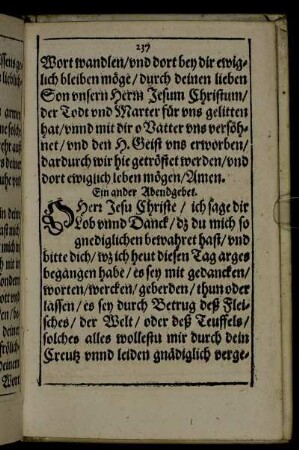 237
Wort wandlen/vnd dort bey dir ewig-
lich bleiben möge/durch deinen lieben
Son vnsern Herrn Jesum Christum/
der Todt vnd Marter für vns gelitten
hat/vnnd mit dir o Vatter vns versöh-
net/vnd den H. Geist vns erworben/
dardurch wir hie getröstet werden/vnd
dort ewiglich leben mögen/Amen.
Ein ander Abendgebet.
O Herr Jesu Christe/ich sage dir
Lob vnnd Danck/dz du mich so
gnediglichen bewahret hast/vnd
bitte dich/wz ich heut diesen Tag arges
begangen habe/es sey mit gedancken/
worten/wercken/geberden/thun oder
lassen/es sey durch Betrug deß Flei-
sches/der Welt/oder deß Teuffels/
solches alles wollestu mir durch dein
Creutz vnnd leiden gnädiglich verge-